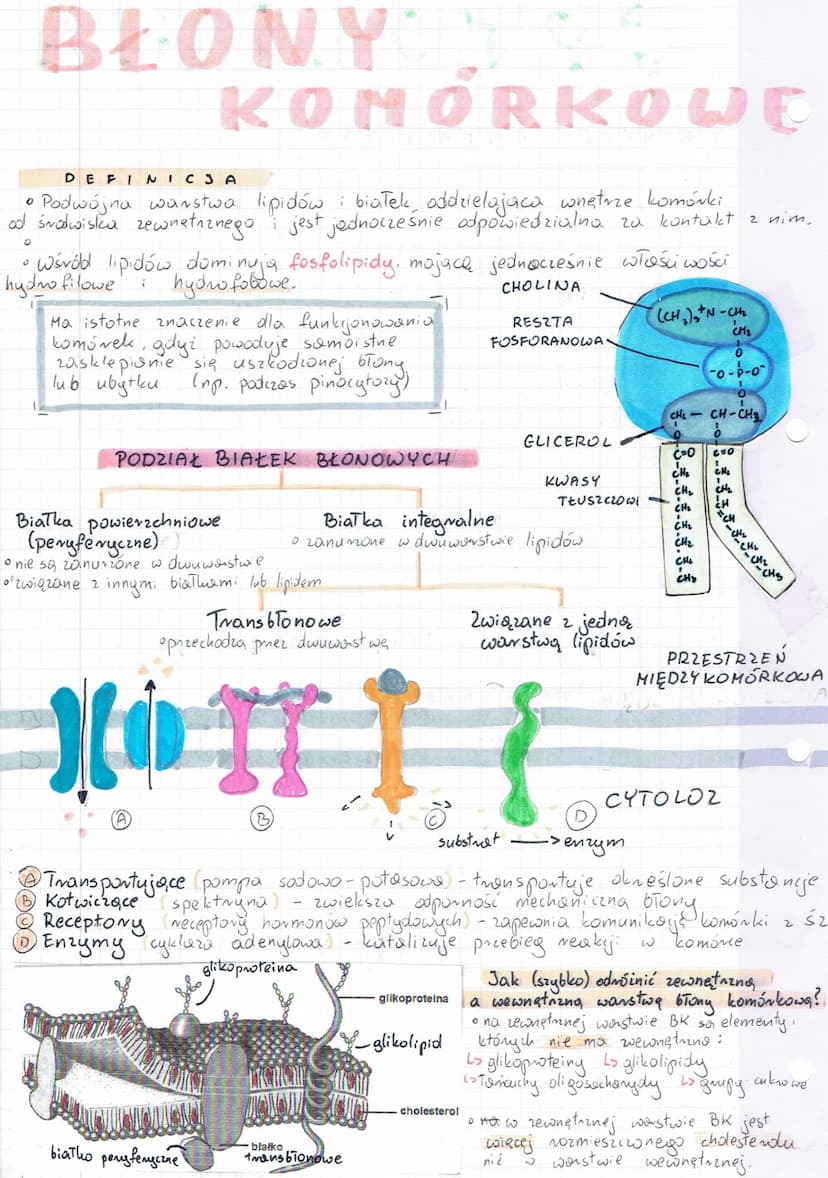 BŁONY
KOMÓRKOWE
DEFINICJA
◦ Podwójna warstwa lipidów i białek oddzielająca wnętrze komórki
od środwiska zewnętrznego i jest jednocześnie odpowiedzialna za kontakt z nim.
◦ wśród lipidów dominują fosfolipidy, mającą jednocześnie właściwości
hydrofilowe i hydrofobowe.
Ma istotne znaczenie dla funkcjonowania
komórek, gdyż powoduje samoistne
zasklepianie się uszkodzonej błony
lub ubytku (np. podczas pinocytozy)
CHOLINA
RESZTA
FOSFORANOWA
GLICEROL
KWASY
TŁUSZCZOWI
(CH3)3+N - CH2
CH2
O
-O-P-O-
O
CH2 - CH - CH2
O O
C=O C=O
CH2 CH2
CH2 CH2
CH2 CH
CH2 CH
CH2 CH2
CH2 CH2
CH3 CH3
PODZIAŁ BIAŁEK BŁONOWYCH
Białka powierzchniowe
(peryferyczne)
◦ nie są zanurzone w dwuwarstwie
◦ związane z innymi białkami lub lipidem
Białka integralne
◦ zanurzone w dwuwarstwie lipidów
Transbłonowe
◦ przechodzą przez dwuwarstwę
Związane z jedną
warstwą lipidów
PRZESTRZEŃ
MIĘDZYKOMÓRKOWA
A
B
C
D
CYTOLOZ
substrat → enzym
A Transportujące (pompa sodowo-potasowa) - transportuje określone substancje
B Kotwiczące (spektryna) - zwiększa odporność mechaniczną błony
C Receptory (receptory hormonów peptydowych) - zapewnia komunikację komórki z ŚZ
D Enzymy (cyklaza adenylowa) - katalizuje przebieg reakcji w komórce
glikoproteina
glikoproteina
glikolipid
cholesterol
białko
transbłonowe
białko peryferyczne
Jak (szybko) odróżnić zewnętrzną
a wewnętrzną warstwę błony komórkowej?
◦ na zewnętrznej warstwie BK są elementy,
których nie ma wewnętrzna:
↳ glikoproteiny ↳ glikolipidy
↳ łańcuchy oligosacharydy ↳ grupy cukrowe
◦ na w zewnętrznej warstwie BK jest
więcej rozmieszczonego cholesterolu
niż w warstwie wewnętrznej.